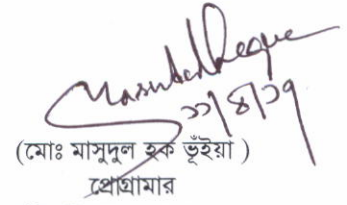 Masudul Hoque
১১/৪/১৭
(মোঃ মাসুদুল হক ভূঁইয়া )
প্রোগ্রামার